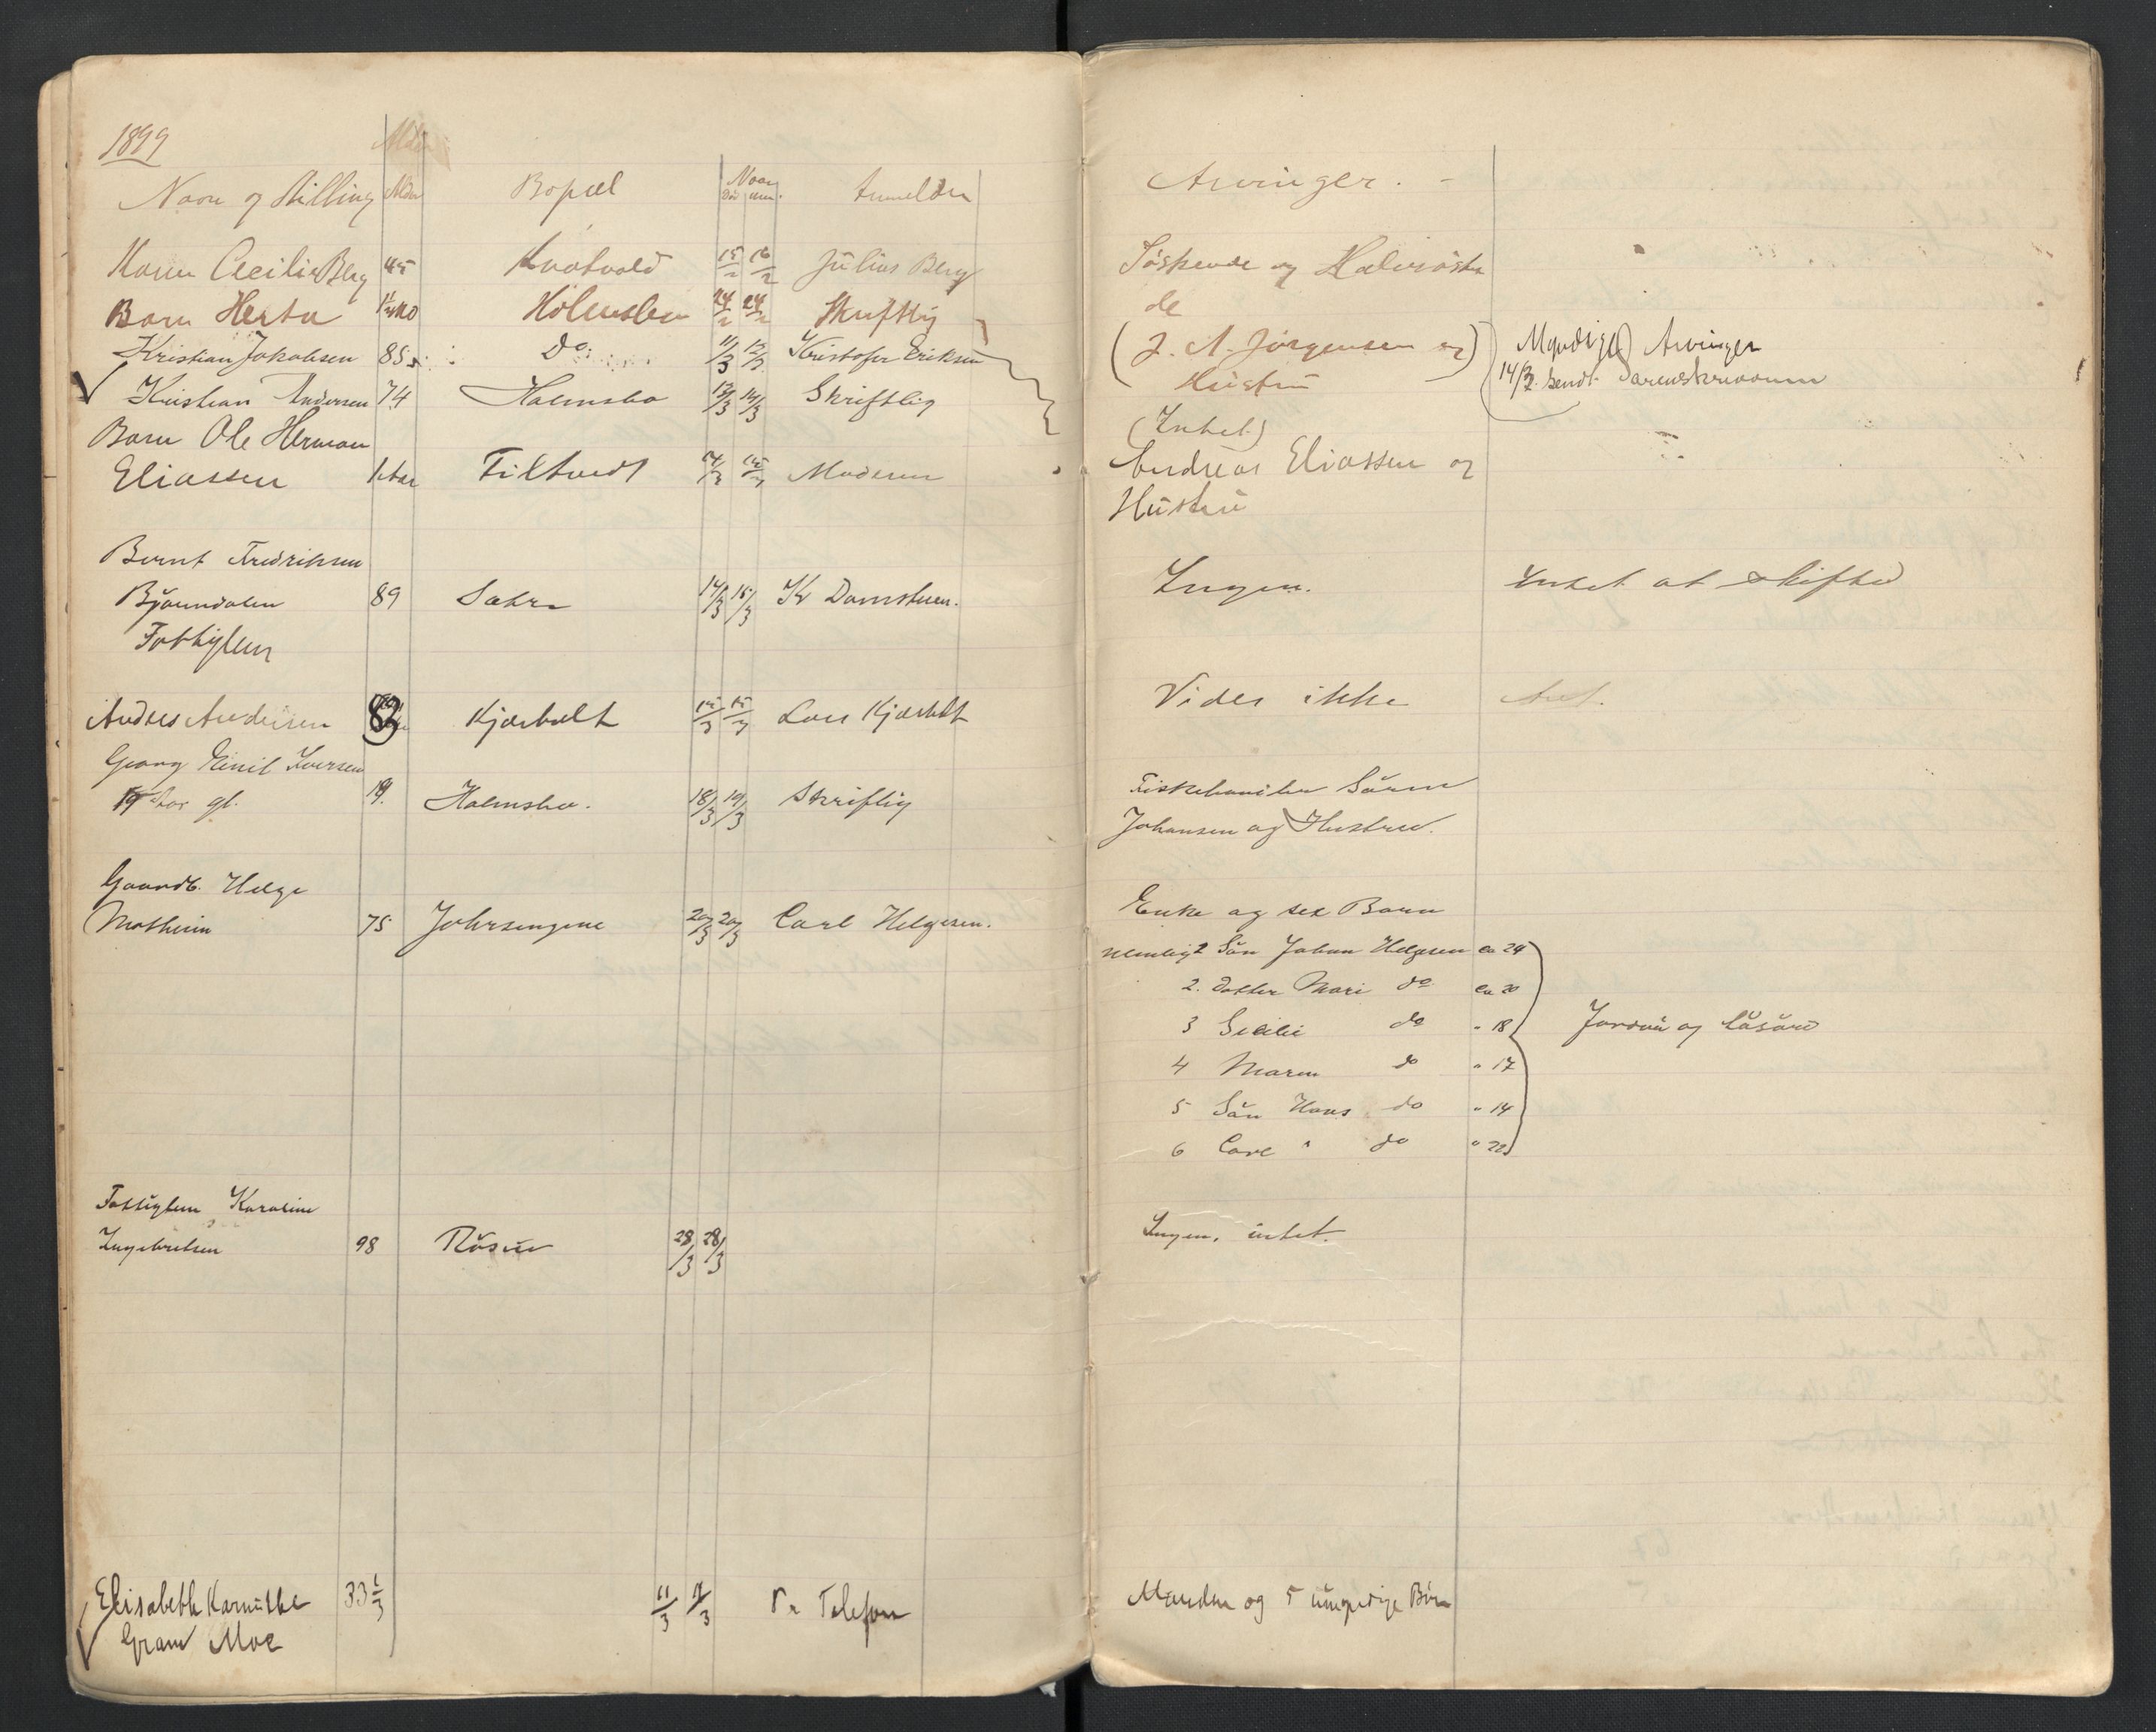 1899
Alder
Navn og Stilling Alder Bopæl Naar Död anm. Anmelder
Karen Cecilie Berg 45 15/2 16/2 Julius Berg
Barn Herta Holmsbo 24/2 24/2 Skriftlig
Kristian Jakobsen 85 Do. 11/3 12/3 Kristofer Eriksen
Kristian Andersen 74 Holmsbo 13/3 14/3 Skriftlig
Barn Ole Herman
Eliassen Filtvedt 14/3 15/3 Moderen
Bernt Fredriksen
Bjørndalen 89 Sætre 14/3 15/3 Kr Damstuen.
Fattiglem
Andreas Andersen 83 Kjærbolt 15/3 15/3 Lars Kjærbolt
Georg Emil Iversen
19 aar gl. 19. Holmsbo. 18/3 19/3 Skriftlig
Gaardb. Helge
75 20/3 20/3 Carl Helgesen.
Fattiglem Karoline
Ingebretsen 98 28/3 28/3
Elisabeth 33 1/3 11/3 11/3 Pr Telefon
Gram Moe
Arvinger. -
Söskende og Halvsöske
de
(J. A. Jörgensen og)
Hustru
Myndige Arvinger
14/3 sendt Sorenskriveren
(Intet)
Andreas Eliassen og
Hustru
Ingen. Intet at skifte
Vides ikke Int.
Fiskehandler Sören
Johansen og Hustru.
Enke og sex Barn
nemlig 1 Sön Johan Helgesen ca 24
2. Datter Mari do ca 20
3 Sicilie do " 18
4 Maren do " 17
5 Sön Hans do " 14
6 Carl " do " 22
Jordvei og Lösöre
Ingen, intet.
Manden og 5 umyndige Börn